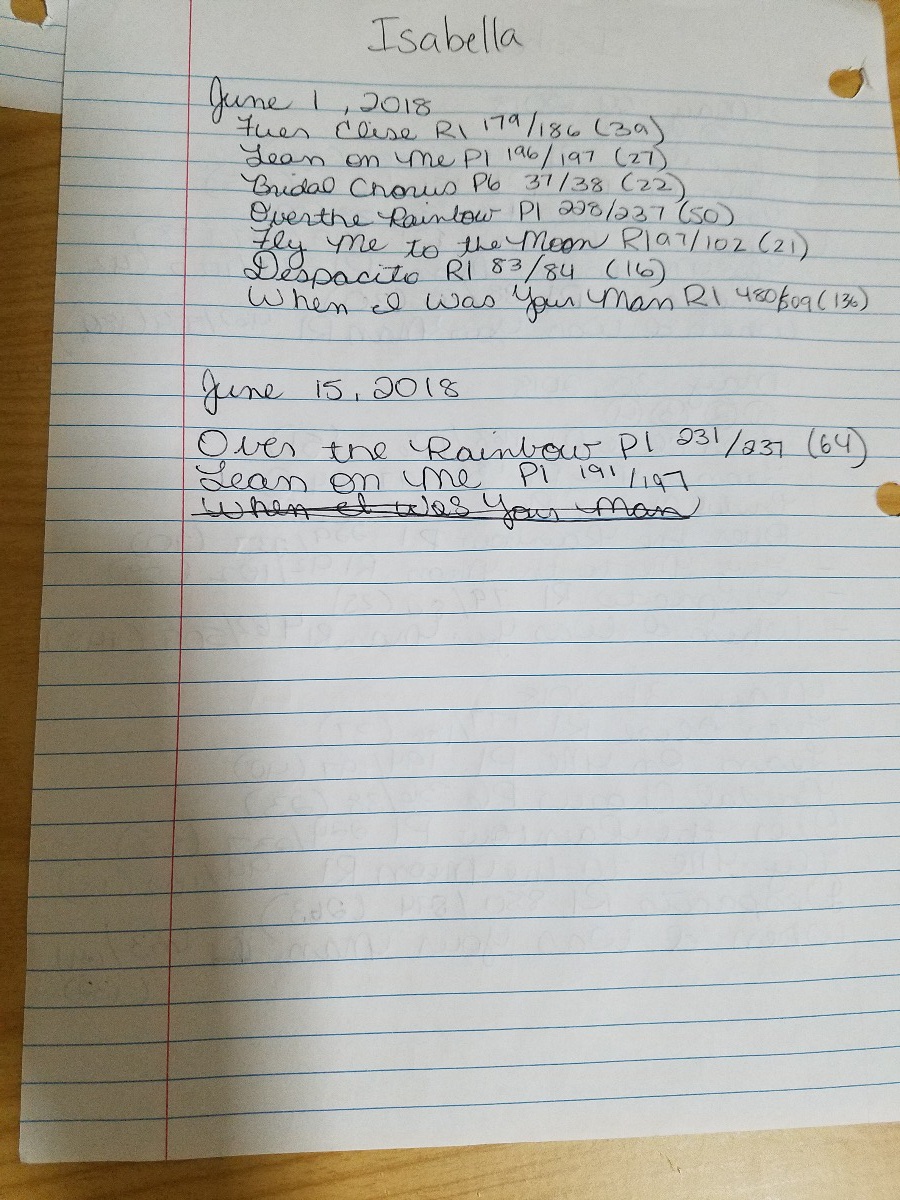 Isabella
June 1, 2018
Fuer Elise R1 179/186 (39)
Lean on Me P1 196/197 (27)
Bridal Chorus P6 37/38 (22)
Over the Rainbow P1 228/237 (50)
Fly Me to the Moon R1 97/102 (21)
Despacito R1 83/84 (16)
When I Was Your Man R1 480/509 (136)
June 15, 2018
Over the Rainbow P1 231/237 (64)
Lean on Me P1 191/197
When I Was Your Man